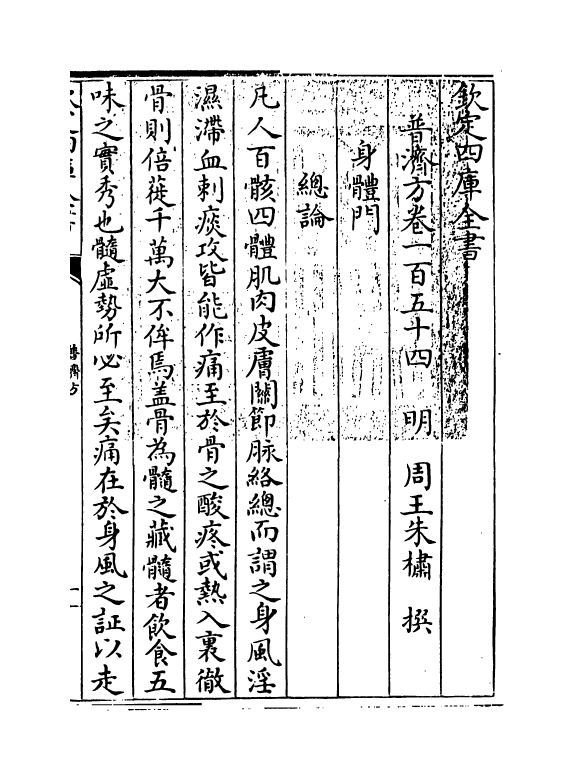 欽定四庫全書
普濟方卷一百五十四　明　周王朱橚　撰
身體門
總論
凡人百骸四體肌肉皮膚關節脉絡總而謂之身風淫
濕滯血刺痰攻皆能作痛至於骨之酸疼或熱入裏徹
骨則倍蓰千萬大不侔焉盖骨為髓之藏髓者飲食五
味之實秀也髓虛勢所必至矣痛在於身風之証以走
普濟方